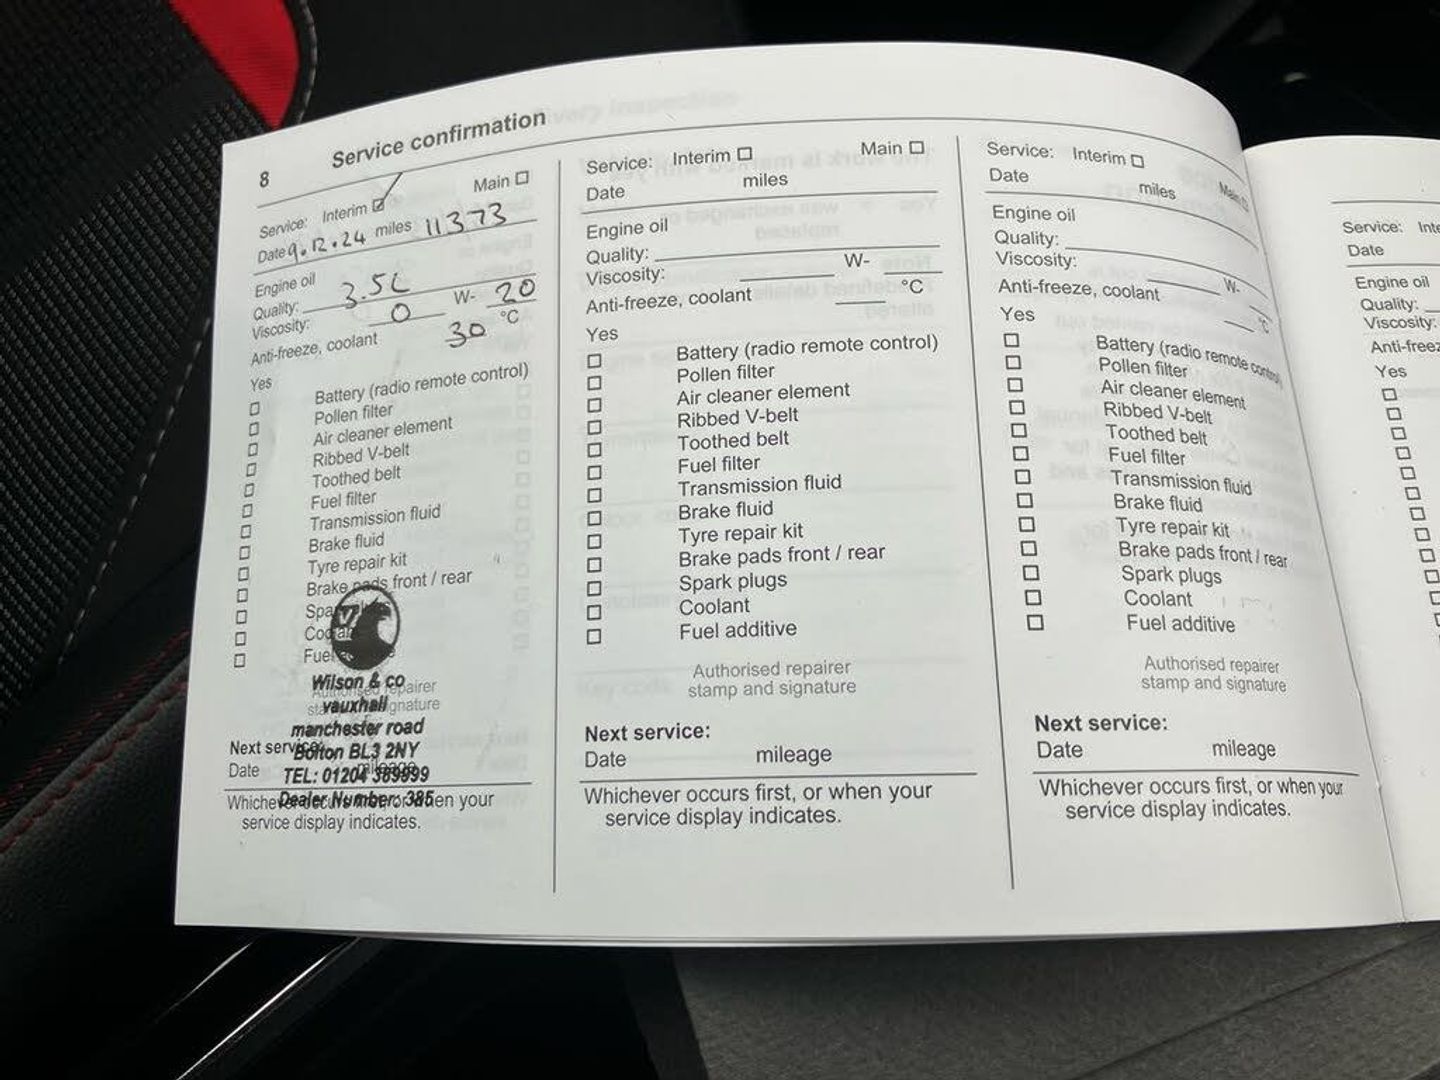 8 Service confirmation
Service: Interim Main
Date 9.12.24 miles 11373
Engine oil
Quality: 3.5L
Viscosity: 0 W- 20
Anti-freeze, coolant 30 °C
Yes
Battery (radio remote control)
Pollen filter
Air cleaner element
Ribbed V-belt
Toothed belt
Fuel filter
Transmission fluid
Brake fluid
Tyre repair kit
Brake pads front / rear
Wilson & co
vauxhall
manchester road
Bolton BL3 2NY
TEL: 01204 389999
Dealer Number: 385
Next service:
Date mileage
Whichever occurs first, or when your
service display indicates.
Service: Interim Main
Date miles
Engine oil
Quality:
Viscosity: W-
Anti-freeze, coolant °C
Yes
Battery (radio remote control)
Pollen filter
Air cleaner element
Ribbed V-belt
Toothed belt
Fuel filter
Transmission fluid
Brake fluid
Tyre repair kit
Brake pads front / rear
Spark plugs
Coolant
Fuel additive
Authorised repairer
stamp and signature
Next service:
Date mileage
Whichever occurs first, or when your
service display indicates.
Service: Interim Main
Date miles
Engine oil
Quality:
Viscosity: W-
Anti-freeze, coolant °C
Yes
Battery (radio remote control)
Pollen filter
Air cleaner element
Ribbed V-belt
Toothed belt
Fuel filter
Transmission fluid
Brake fluid
Tyre repair kit
Brake pads front / rear
Spark plugs
Coolant
Fuel additive
Authorised repairer
stamp and signature
Next service:
Date mileage
Whichever occurs first, or when your
service display indicates.
Service: Inte
Date
Engine oil
Quality:
Viscosity:
Anti-freez
Yes